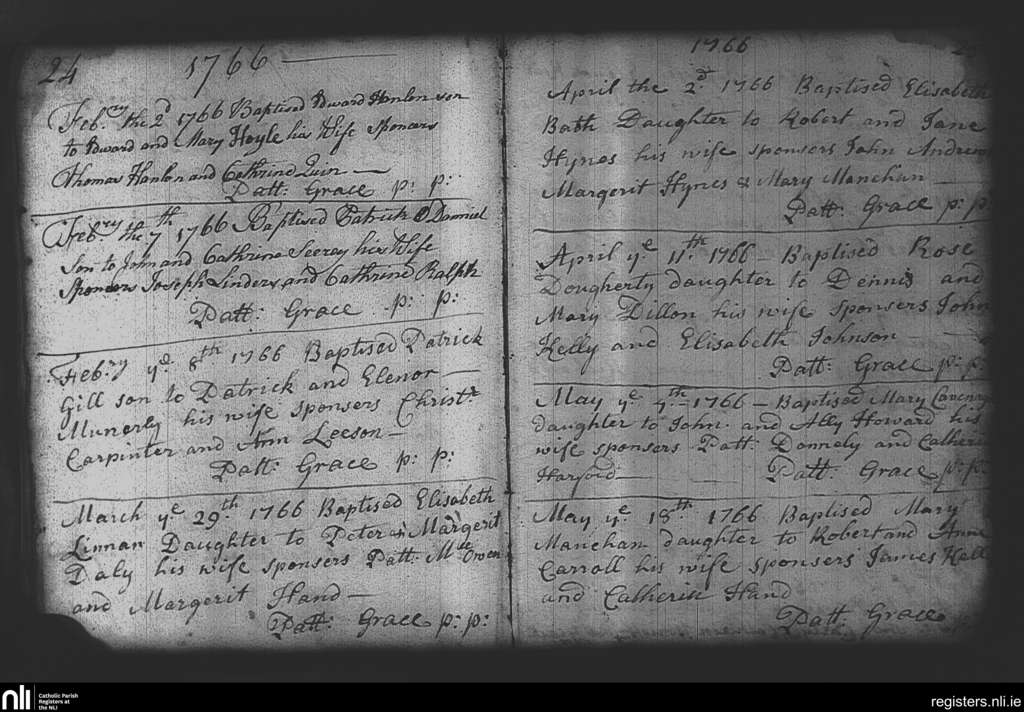 24 1766
Feb.ry the 2d 1766 Baptised Edward Hanlon son
to Edward and Mary Hoyle his Wife Sponcers
Thomas Hanlon and Cathrine Quin
Patt: Grace p: p:
Feb.ry the 7th 1766 Baptised Patrick O Danniel
Son to John and Cathrine Seeray his Wife
Sponcers Joseph Linders and Cathrine Ralph
Patt: Grace p: p:
Feb.ry ye 8th 1766 Baptised Patrick
Gill son to Patrick and Elenor
Munerly his wife sponsers Christr
Carpinter and Ann Leeson
Patt: Grace p: p:
March ye 29th 1766 Baptised Elisabeth
Linnan Daughter to Peter & Margerit
Daly his wife sponsers Patt: Owen
and Margerit Hand
Patt: Grace p: p:
1766
April the 2d 1766 Baptised Elisabeth
Bath Daughter to Robert and Jane
Hynes his wife sponsers John Andrew
Margerit Hynes & Mary Manchan
Patt: Grace p: p:
April ye 11th 1766 Baptised Rose
Dougherty daughter to Dennis and
Mary Dillon his wife sponsers John
Kelly and Elisabeth Johnson
Patt: Grace p: p:
May ye 1766 Baptised Mary
daughter to John and Ally Howard his
wife sponsers Patt: Donnely and
Harford
Patt: Grace p: p:
May ye 18th 1766 Baptised Mary
Manchan daughter to Robert and Anne
Carroll his wife sponsers James Hall
and Catherin Hand
Patt: Grace
nli Catholic Parish
Registers at
the NLI
registers.nli.ie